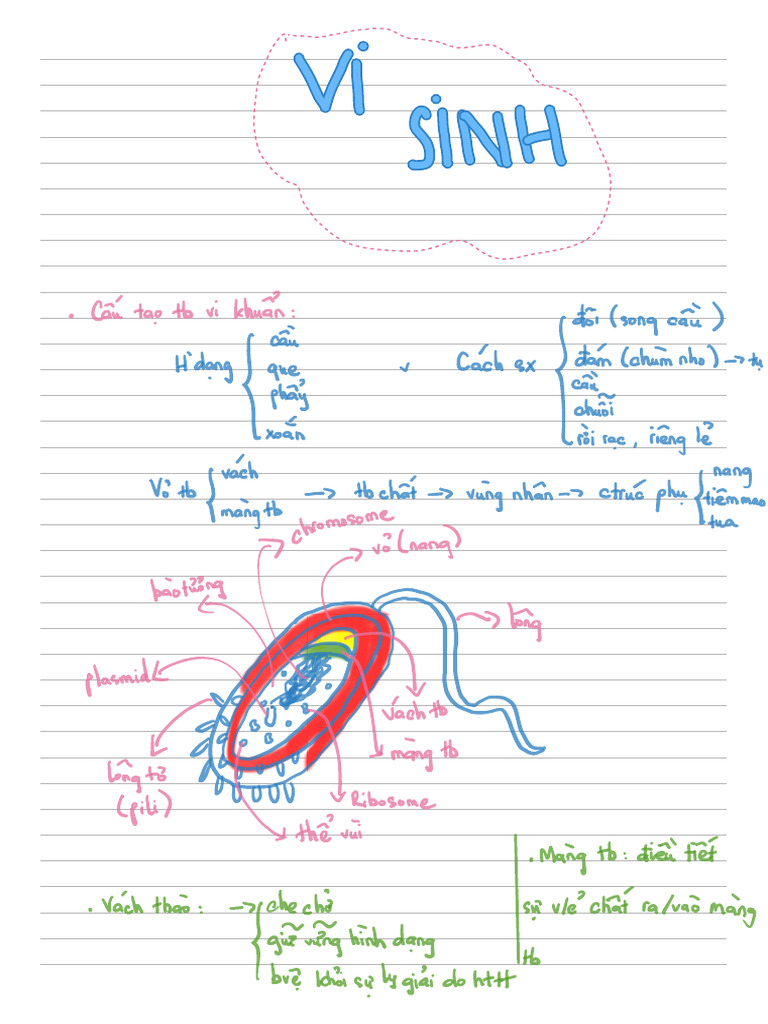 Vi
SINH
. Cấu tạo tb vi khuẩn:
H` dạng
cầu
que
phẩy
xoắn
Cách sx
đôi (song cầu)
đám (chùm nho) → tụ
cầu
chuỗi
rời rạc, riêng lẻ
Vỏ tb
vách
màng tb
→ tb chất → vùng nhân → ctrúc phụ
nang
tiêm mao
tua
chromosome
vỏ (nang)
bào tương
lông
plasmid
vách tb
màng tb
lông tơ
(pili)
Ribosome
thể vùi
. Màng tb: điều tiết
sự v/c chất ra/vào màng
tb
. Vách tbào: →
che chở
giữ vững hình dạng
bvệ khỏi sự ly giải do